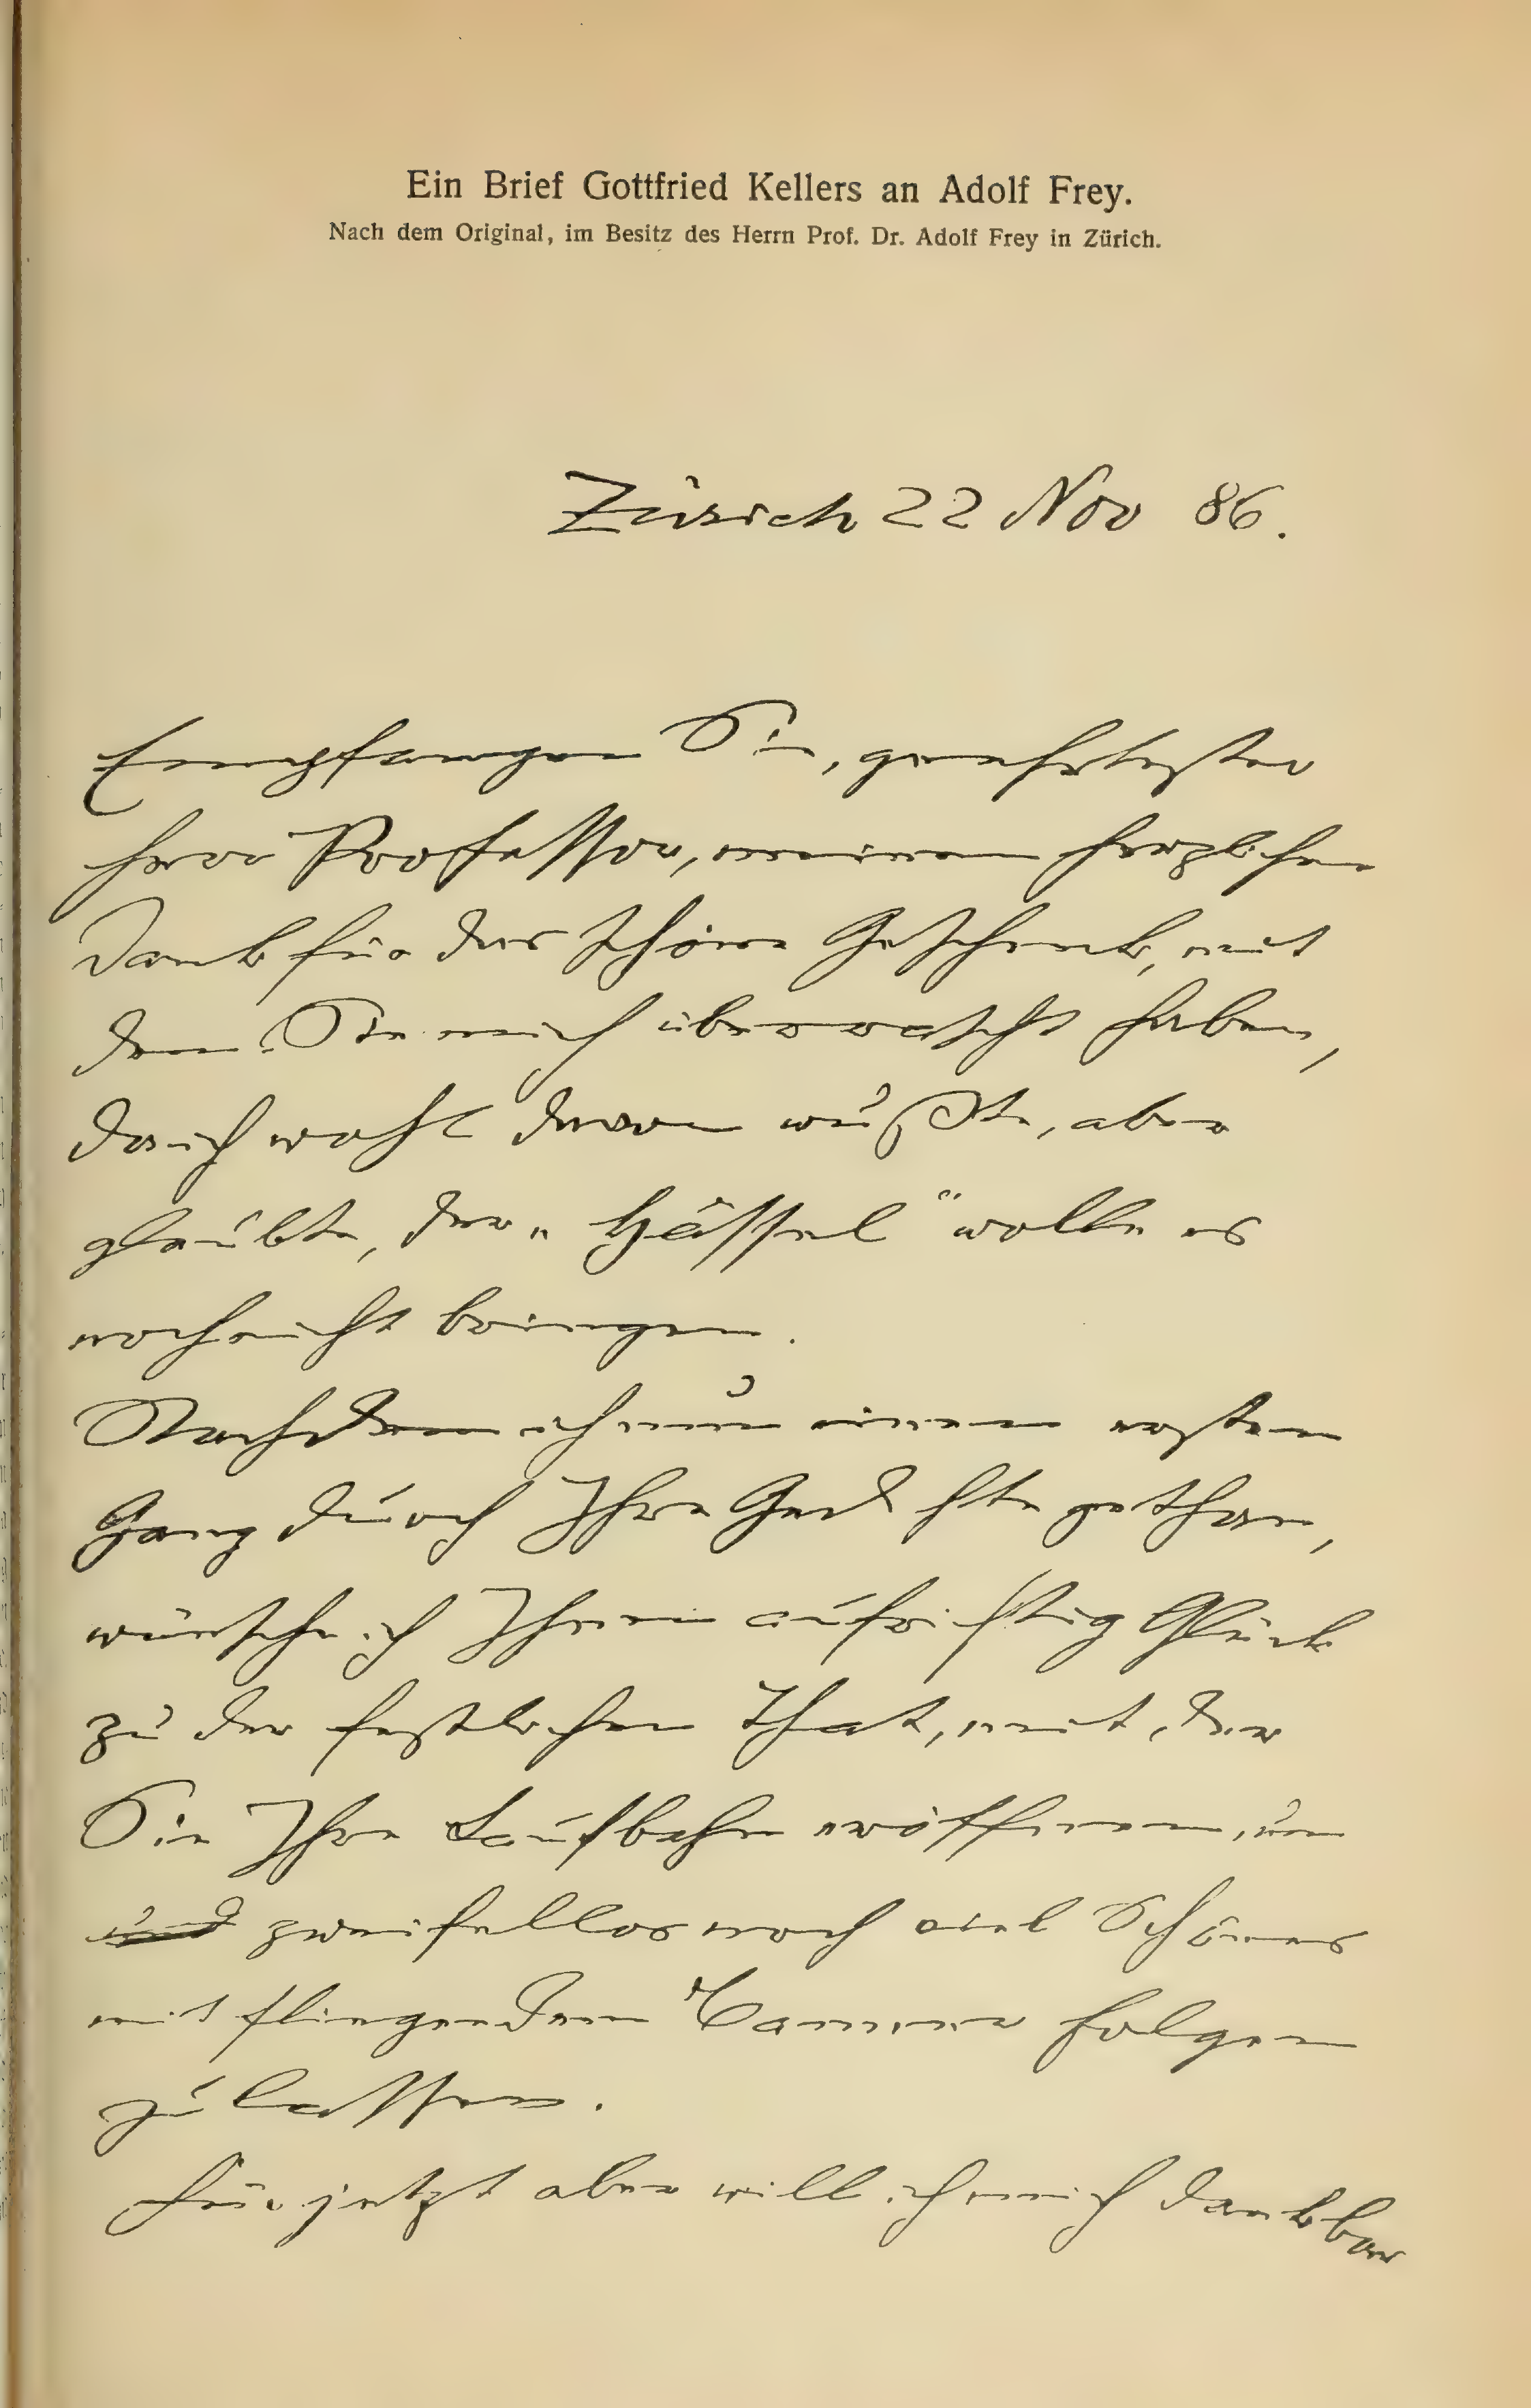 Ein Brief Gottfried Kellers an Adolf Frey.
Nach dem Original, im Besitz des Herrn Prof. Dr. Adolf Frey in Zürich.
Zürich 22 Nov 86.
Empfangen Sie, geehrtester
Herr Professor, meinen herzlichen
Dank für das schöne Geschenk, mit
dem Sie mich überrascht haben,
da ich wohl davon wußte, aber
glaubte, der „Hässel" wolle es
noch nicht bringen.
Nachdem ich nun einen ersten
Gang durch Ihre Gedichte gethan,
wünsche ich Ihnen aufrichtig Glück
zu der festlichen That, mit der
Sie Ihre Laufbahn eröffnen, um
und zweifellos noch viel Schönes
mit fliegendem Banner folgen
zu lassen.
Für jetzt aber will ich mich dankbar